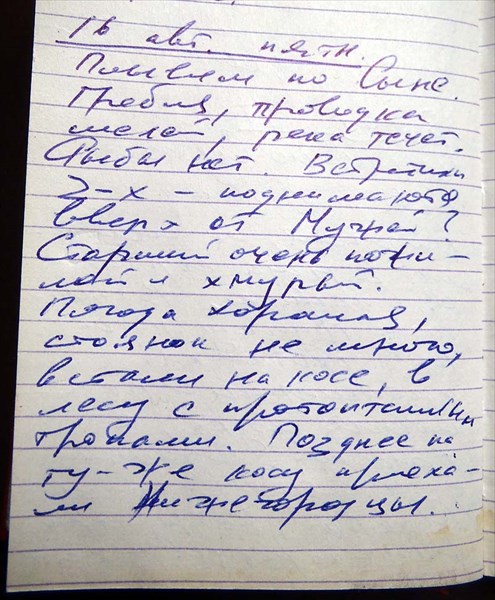 16 авг. пятн.
Плывем по Сыне.
Гребля, проводка
мелей, река течет.
Рыбы нет. Встретили
2-х - поднимаются
вверх от Мужей?
Старший очень пожи-
лой и хмурый.
Погода хорошая,
стоянок не много,
встали на косе, в
лесу с протоптанными
тропами. Позднее на
ту-же косу приеха-
ли Нижегородцы.